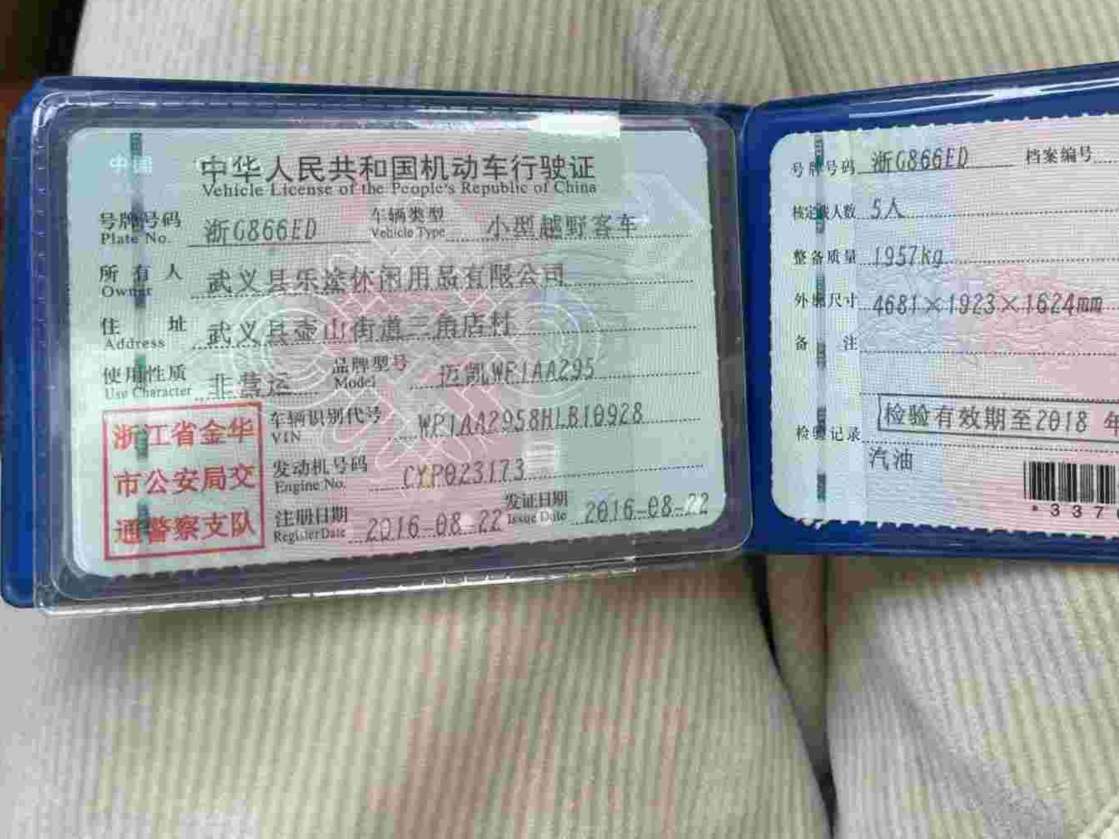 中国
中华人民共和国机动车行驶证
Vehicle License of the People's Republic of China
号牌号码 浙G866ED 车辆类型 小型越野客车
Plate No. Vehicle Type
所有人 武义县乐途休闲用品有限公司
Owner
住址 武义县壶山街道三角店村
Address
使用性质 非营运 品牌型号 迈凯WP1AA295
Use Character Model
浙江省金华
市公安局交
通警察支队
车辆识别代号 WP1AA2958HLB10928
VIN
发动机号码 CYP023173
Engine No.
注册日期 2016-08-22 发证日期 2016-08-22
Register Date Issue Date
号牌号码 浙G866ED 档案编号
核定载人数 5人
整备质量 1957kg
外廓尺寸 4681×1923×1624mm
备注
检验有效期至2018 年
检验记录
汽油
*337